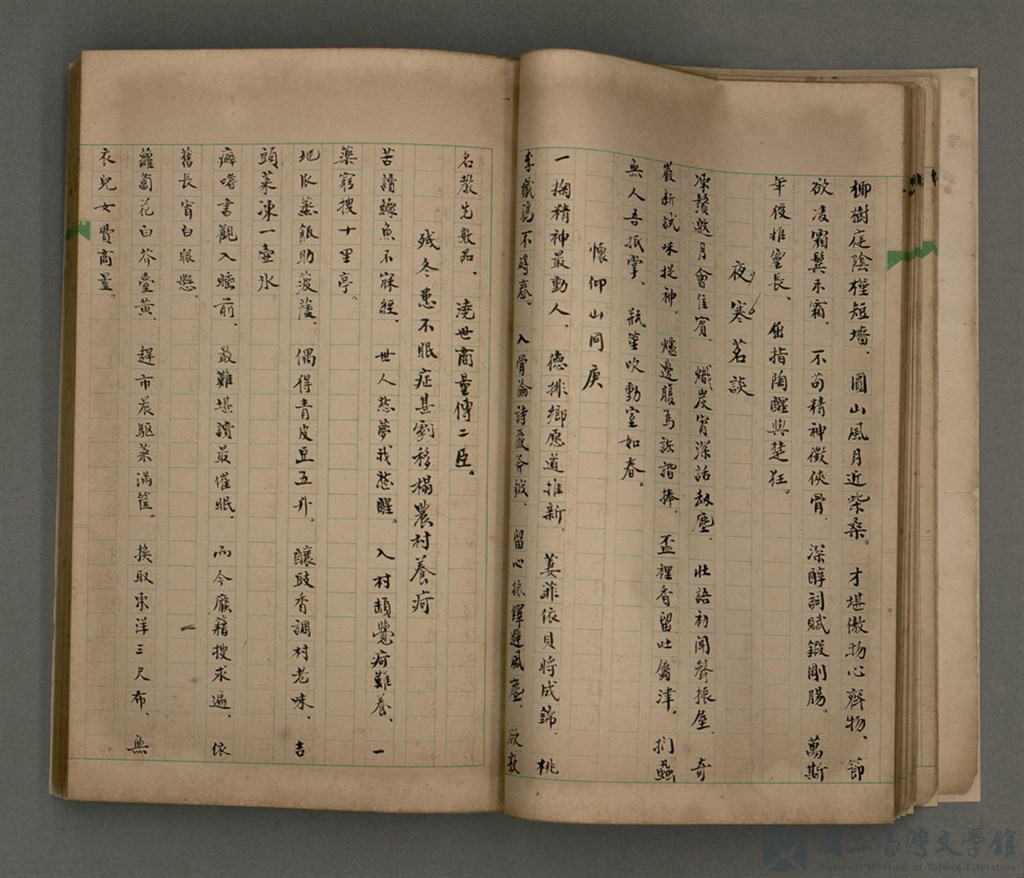 柳樹庭陰種短墻、圓山風月近柴桑。才堪傲物心齊物、節
欲凌霜鬓未霜、不苟精神徵俠骨、深醇詞賦鍛剛腸。萬斯
年後推電長、屈指陶醒與楚狂。
夜寒茗談
凍鬚邀月會佳賓、熾炭宵深話劫塵、壯語初聞聲振屋、奇
嚴新試味提神、爐邊腹為詼諧捧、盃裡香留吐屬津。捫蝨
無人吾抵掌、瓶笙吹動室如春。
懷仰山同庚
一掬精神最動人、德排鄉愿道推新、萋菲依貝將成錦、桃
李成蹊不待春、入骨論詩嚴斧鉞、留心振鐸避風塵、欲教
名教先敷品、澆世商量傳二臣。
殘冬患不眠症甚劇移榻農村養疴
苦讀鰥魚不寐經、世人愁夢我愁醒。入村頻覺疴難養、一
藥窮搜十里亭。
地瓜蒸飯助菠薐、偶得青皮豆五升。釀豉香調村老味、吉
頭菜凍一壺氷
癖嗜書觀入睡前、最難堪讀最催眠、而今廢籍搜求遍、依
舊長宵白眼懸、
蘿蔔花白芥薹黃、趕市晨驅菜滿筐。換取東洋三尺布、無
衣兒女費商量。
國立臺灣文學館
National Museum of Taiwan Literature